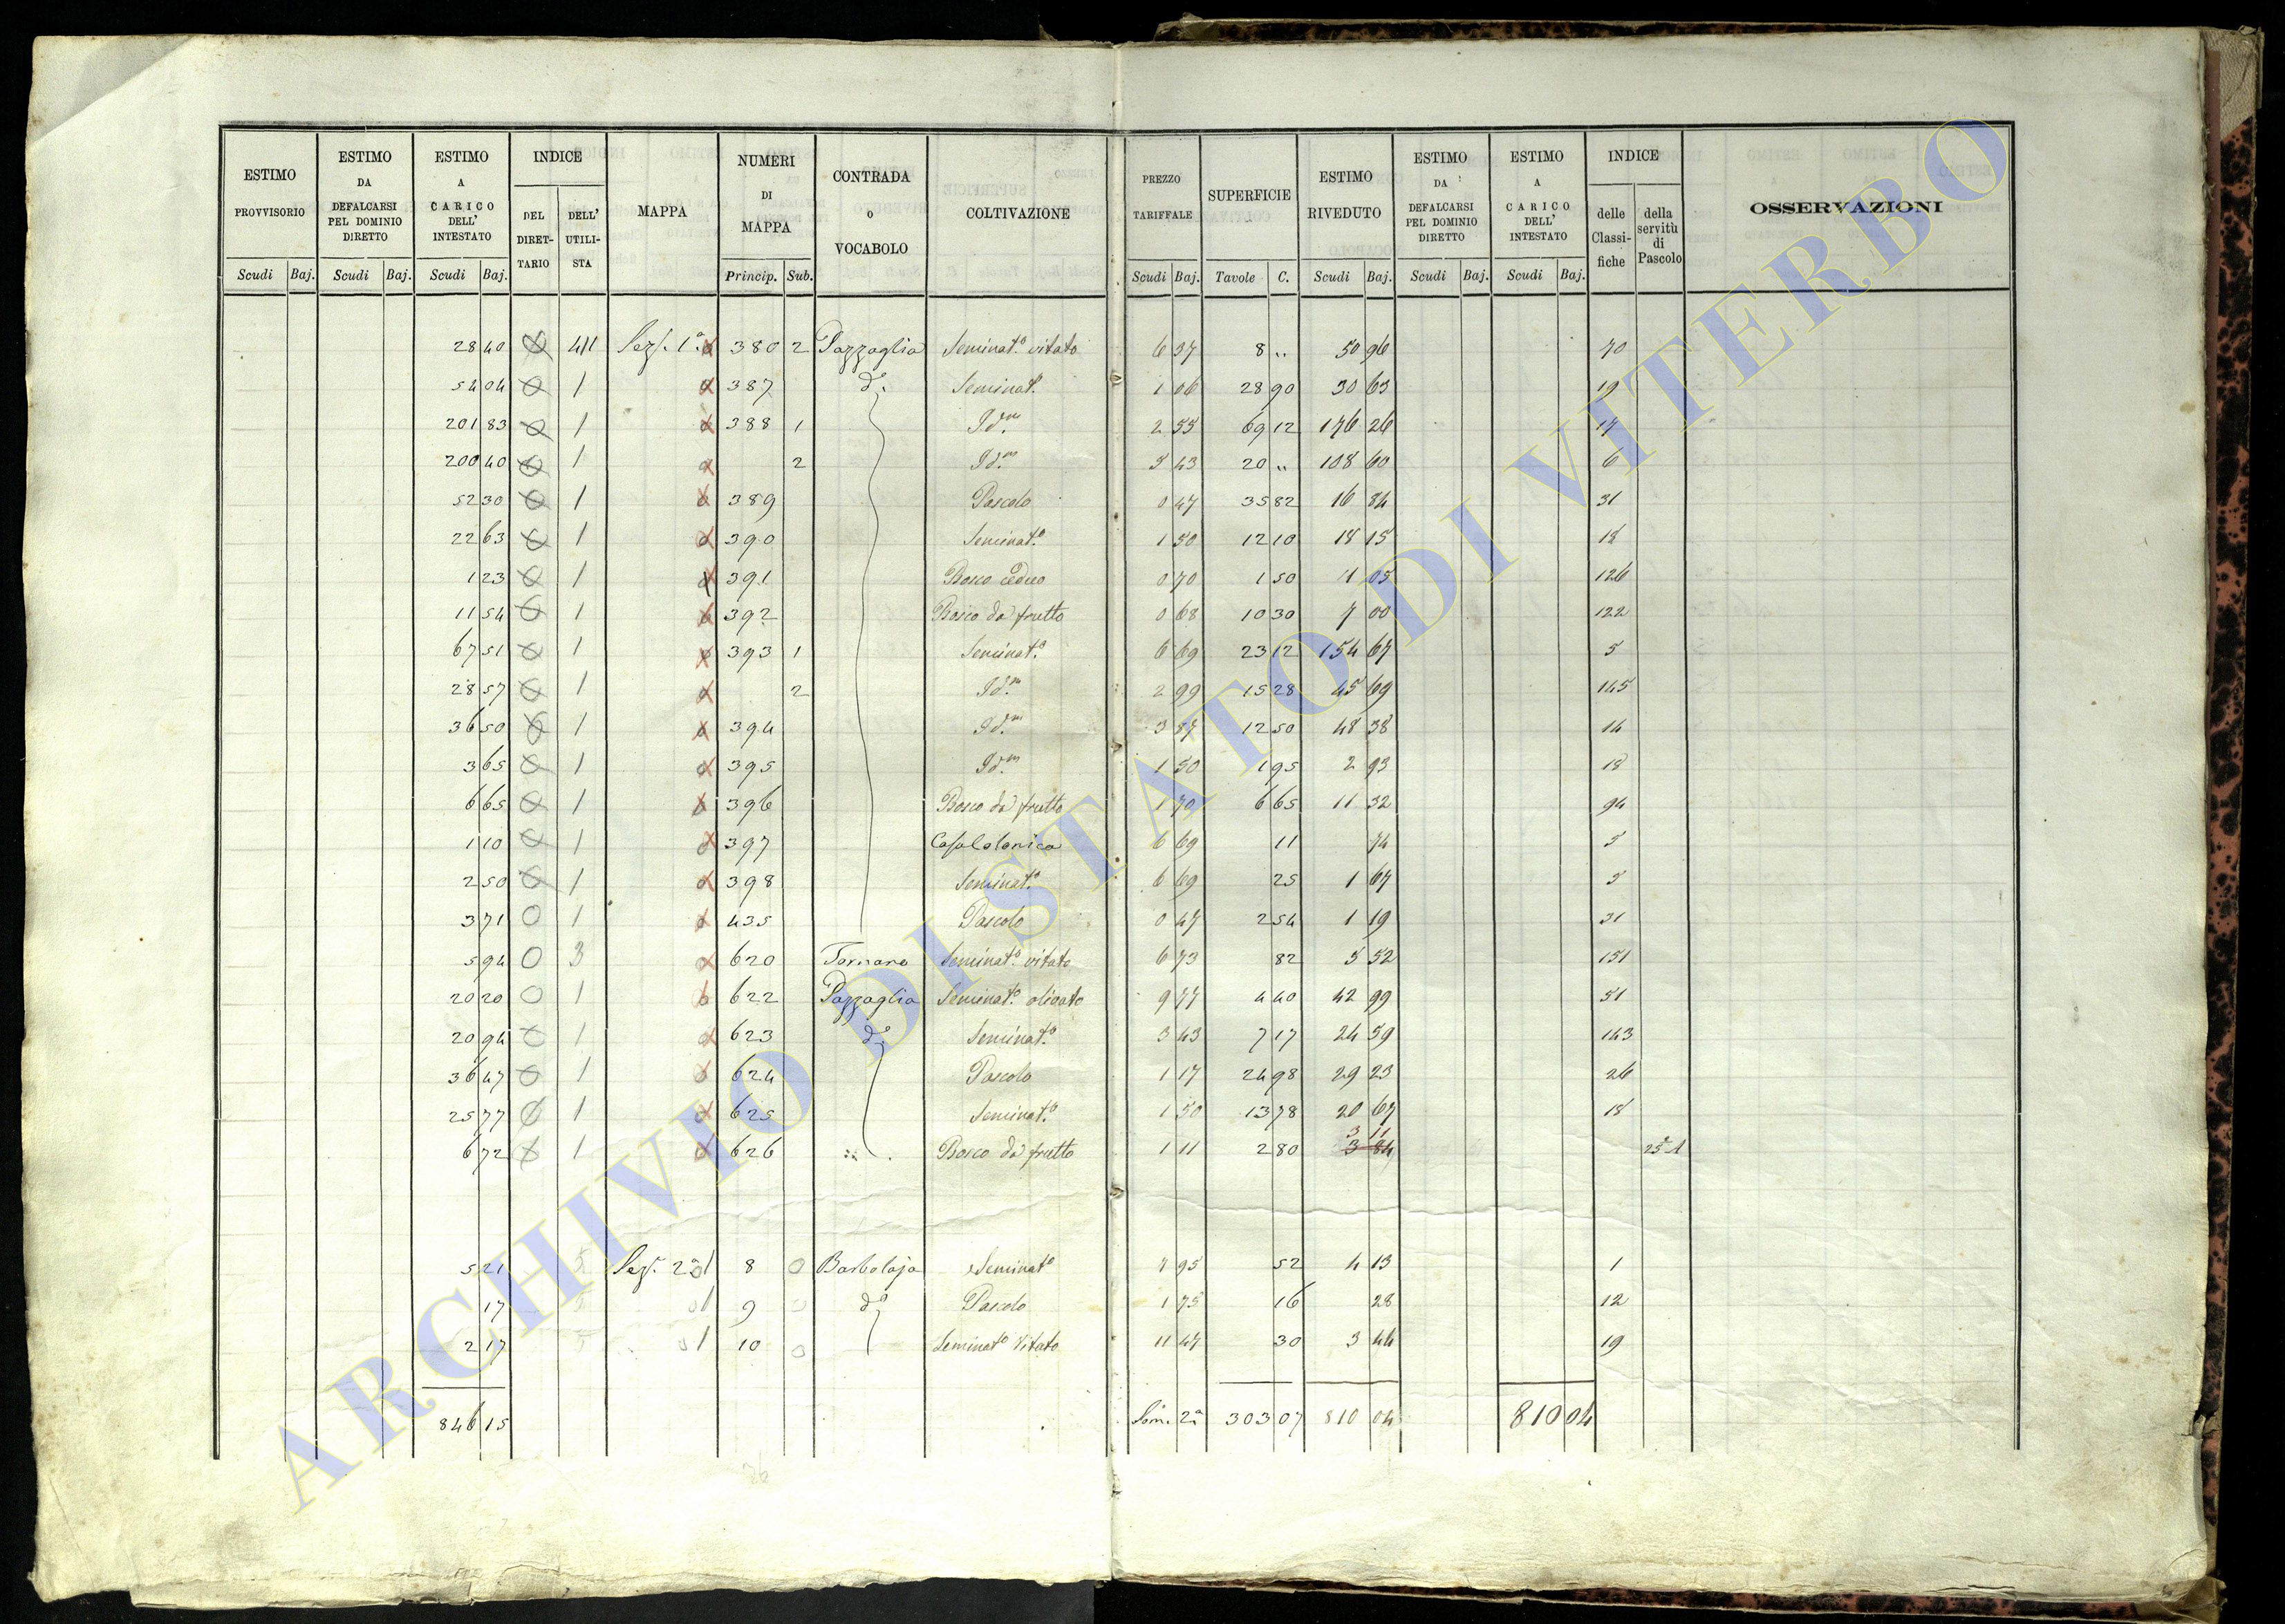 ESTIMO PROVVISORIO | ESTIMO DA DEFALCARSI PEL DOMINIO DIRETTO | ESTIMO A CARICO DELL' INTESTATO | INDICE | MAPPA | NUMERI DI MAPPA | CONTRADA o VOCABOLO | COLTIVAZIONE | PREZZO TARIFFALE | SUPERFICIE | ESTIMO RIVEDUTO | ESTIMO DA DEFALCARSI PEL DOMINIO DIRETTO | ESTIMO A CARICO DELL' INTESTATO | INDICE | OSSERVAZIONI
DEL DIRETTARIO | DELL' UTILISTA | delle Classifiche | della servitù di Pascolo
Scudi | Baj. | Scudi | Baj. | Scudi | Baj. | Princip. | Sub. | Scudi | Baj. | Tavole | C. | Scudi | Baj. | Scudi | Baj. | Scudi | Baj.
28 40 | Sez. 1ª | 380 | 2 | Pazzaglia | Seminat.º vitato | 6 37 | 8 „ | 50 96 | 70
54 04 | 1 | 387 | dº | Seminat.º | 1 06 | 28 90 | 30 63 | 19
201 83 | 1 | 388 | 1 | Id.m | 2 55 | 69 12 | 176 26 | 17
200 40 | 1 | 2 | Id.m | 5 43 | 20 „ | 108 60 | 6
52 30 | 1 | 389 | Pascolo | 0 47 | 35 82 | 16 84 | 31
22 63 | 1 | 390 | Seminat.º | 1 50 | 12 10 | 18 15 | 18
1 23 | 1 | 391 | Bosco ceduo | 0 70 | 1 50 | 1 05 | 126
11 54 | 1 | 392 | Bosco da frutto | 0 68 | 10 30 | 7 00 | 122
67 51 | 1 | 393 | 1 | Seminat.º | 6 69 | 23 12 | 154 67 | 5
28 57 | 1 | 2 | Id.m | 2 99 | 15 28 | 45 69 | 145
36 50 | 1 | 394 | Id.m | 3 87 | 12 50 | 48 38 | 14
3 65 | 1 | 395 | Id.m | 1 50 | 1 95 | 2 93 | 18
6 65 | 1 | 396 | Bosco da frutto | 1 70 | 6 65 | 11 32 | 94
1 10 | 1 | 397 | Casa Colonica | 6 69 | 11 | 74 | 5
2 50 | 1 | 398 | Seminat.º | 6 69 | 25 | 1 67 | 5
3 71 | 0 | 1 | 435 | Pascolo | 0 47 | 2 54 | 1 19 | 31
5 94 | 0 | 3 | 620 | Fornara | Seminat.º vitato | 6 73 | 82 | 5 52 | 151
20 20 | 0 | 1 | 622 | Pazzaglia | Seminat.º olivato | 9 77 | 4 40 | 42 99 | 51
20 94 | 1 | 623 | dº | Seminat.º | 3 43 | 7 17 | 24 59 | 143
36 47 | 1 | 624 | Pascolo | 1 17 | 24 98 | 29 23 | 26
25 77 | 1 | 625 | Seminat.º | 1 50 | 13 78 | 20 67 | 18
3 11
6 72 | 1 | 626 | Bosco da frutto | 1 11 | 2 80 | 3 84
5 21 | 5 | Sez. 2ª | 8 | 0 | Barbolaja | Seminat.º | 7 95 | 52 | 4 13 | 1
17 | 5 | 9 | 0 | dº | Pascolo | 1 75 | 16 | 28 | 12
2 17 | 5 | 10 | 0 | Seminat.º Vitato | 11 47 | 30 | 3 44 | 19
846 15 | Som. 2ª | 303 07 | 810 04 | 810 04
ARCHIVIO DI STATO DI VITERBO